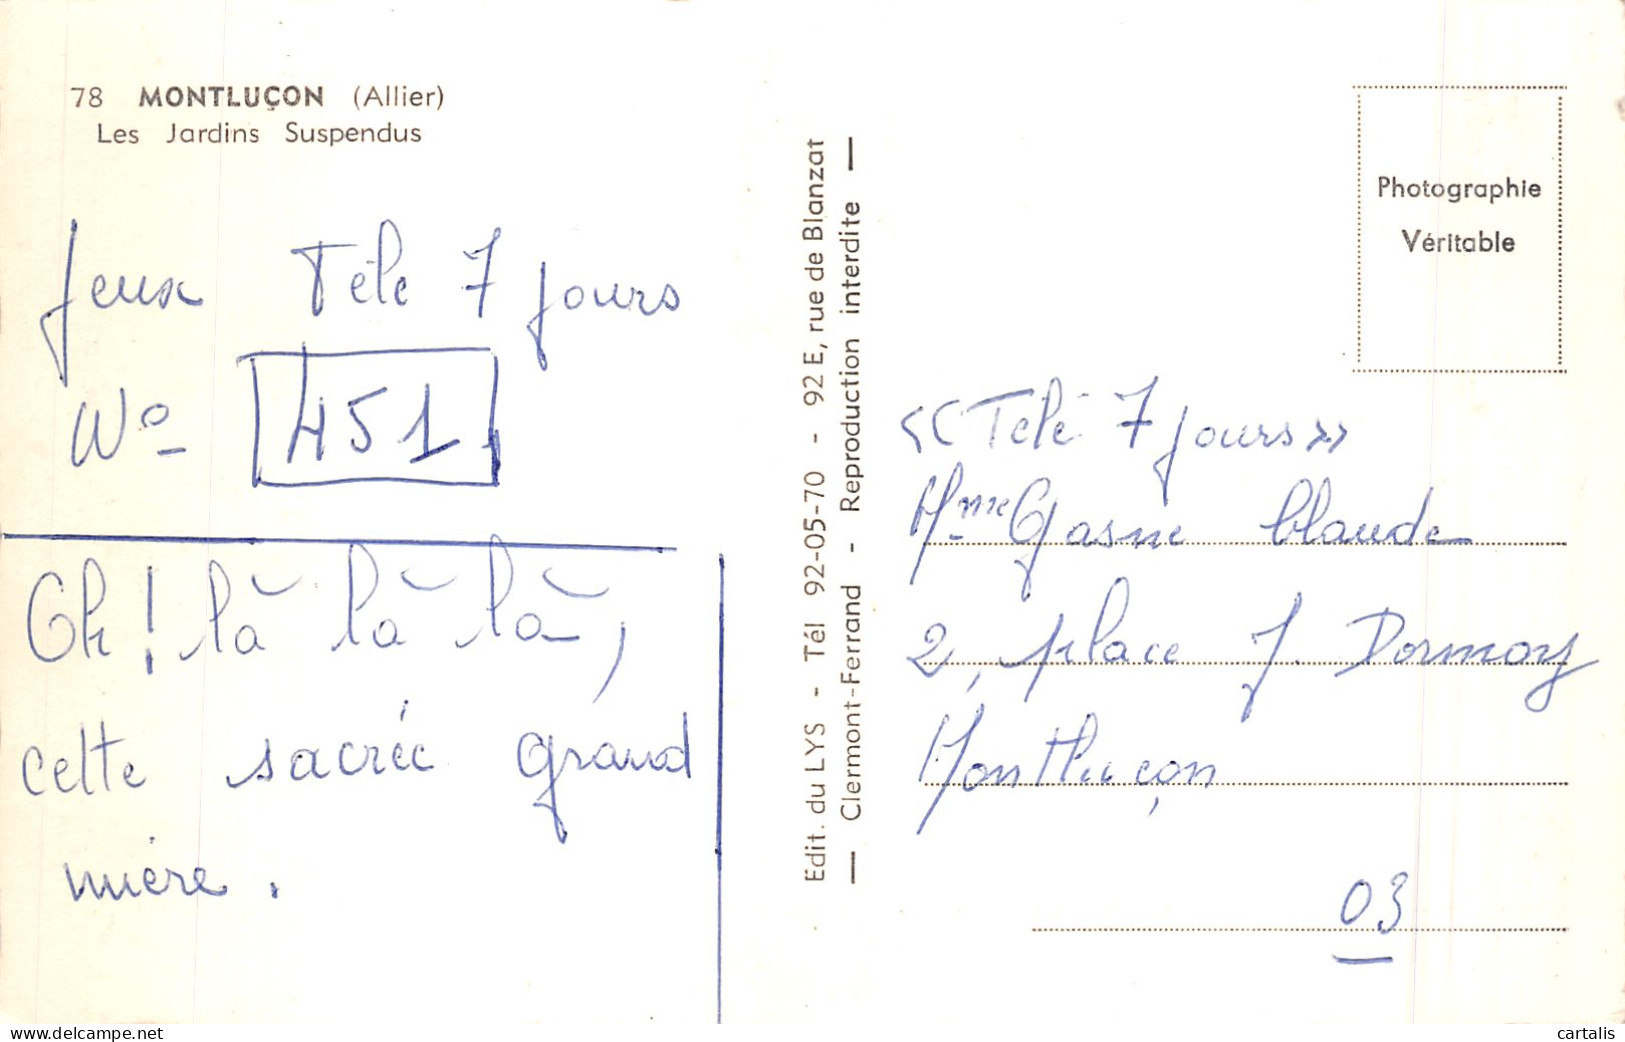 78 MONTLUÇON (Allier)
Les Jardins Suspendus
Jeux Télé 7 jours
Nº 451
Oh! là là là,
cette sacrée grand
mière.
Edit. du LYS - Tél 92-05-70 - 92 E, rue de Blanzat
— Clermont-Ferrand - Reproduction interdite —
Photographie
Véritable
« Télé 7 jours »
Mme Gasne Claude
2, place J. Dormoy
Montluçon
03
www.delcampe.net
cartalis